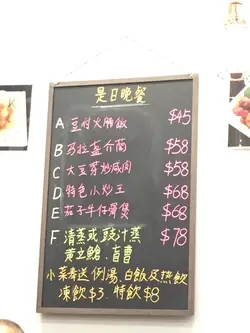 是日晚餐
A 豆付火腩飯 $45
B 馬拉盞介蘭 $58
C 大豆芽炒咸肉 $58
D 特色小炒王 $68
E 茄子牛仔骨煲 $68
F 清蒸或豉汁蒸 $78
黃立鯧,盲曹
小菜奉送例湯,白飯及熱飲
凍飲$3 特飲$8